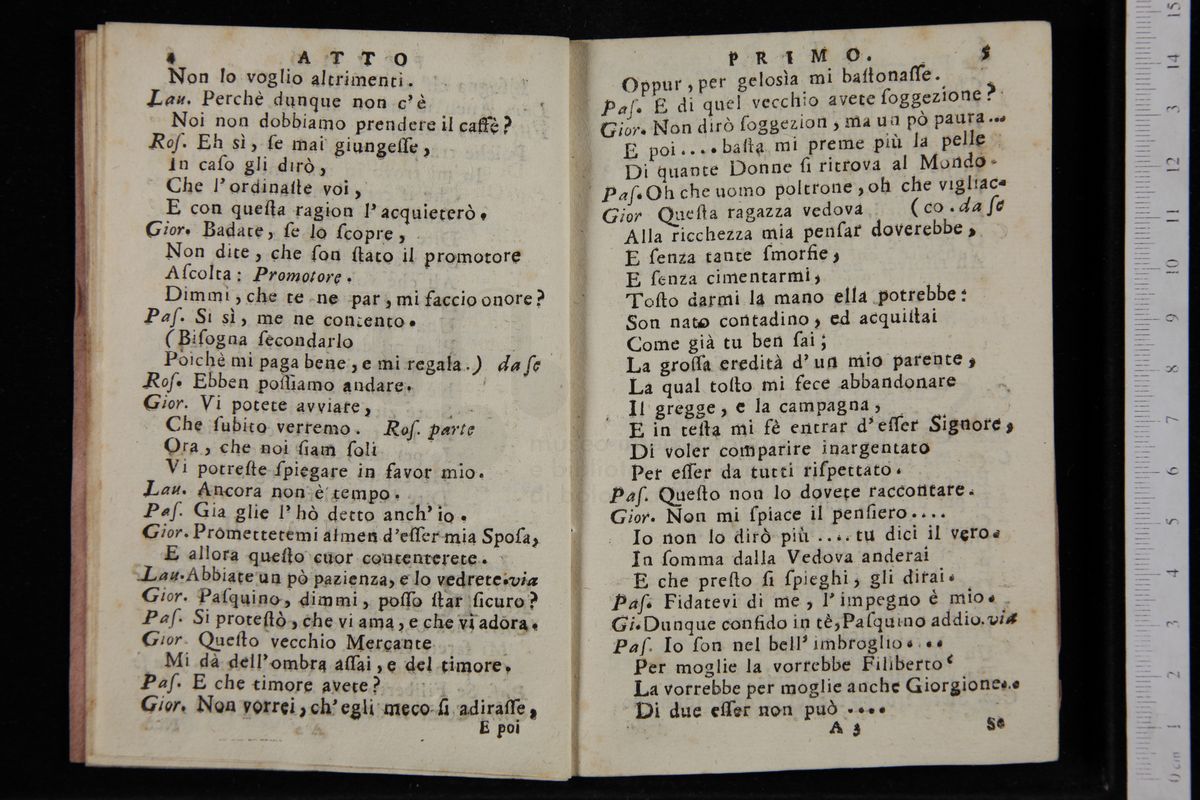 4 ATTO
Non lo voglio altrimenti.
Lau. Perchè dunque non c'è
Noi non dobbiamo prendere il caffè?
Roſ. Eh sì, ſe mai giungeſſe,
In caſo gli dirò,
Che l'ordinaſte voi,
E con queſta ragion l'acquieterò.
Gior. Badate, ſe lo ſcopre,
Non dite, che ſon ſtato il promotore
Aſcolta: Promotore.
Dimmi, che te ne par, mi faccio onore?
Paſ. Si sì, me ne contento.
(Biſogna ſecondarlo
Poichè mi paga bene, e mi regala.) da ſe
Roſ. Ebben poſſiamo andare.
Gior. Vi potete avviare,
Che ſubito verremo. Roſ. parte
Ora, che noi ſiam ſoli
Vi potreſte ſpiegare in favor mio.
Lau. Ancora non è tempo.
Paſ. Gia glie l'hò detto anch'io.
Gior. Promettetemi almen d'eſſer mia Spoſa,
E allora queſto cuor contenterete.
Lau. Abbiate un pò pazienza, e lo vedrete. via
Gior. Paſquino, dimmi, poſſo ſtar ſicuro?
Paſ. Si proteſtò, che vi ama, e che vi adora.
Gior. Queſto vecchio Mercante
Mi dà dell'ombra aſſai, e del timore.
Paſ. E che timore avete?
Gior. Non vorrei, ch'egli meco ſi adiraſſe,
E poi
PRIMO. 5
Oppur, per gelosìa mi baſtonaſſe.
Paſ. E di quel vecchio avete ſoggezione?
Gior. Non dirò ſoggezion, ma un pò paura...
E poi.... baſta mi preme più la pelle
Di quante Donne ſi ritrova al Mondo.
Paſ. Oh che uomo poltrone, oh che vigliac-
Gior Queſta ragazza vedova (co. da ſe
Alla ricchezza mia penſar doverebbe,
E ſenza tante ſmorfie,
E ſenza cimentarmi,
Toſto darmi la mano ella potrebbe:
Son nato contadino, ed acquiſtai
Come già tu ben ſai;
La groſſa eredità d'un mio parente,
La qual toſto mi fece abbandonare
Il gregge, e la campagna,
E in teſta mi fè entrar d'eſſer Signore,
Di voler comparire inargentato
Per eſſer da tutti riſpettato.
Paſ. Queſto non lo dovete raccontare.
Gior. Non mi ſpiace il penſiero....
Io non lo dirò più .... tu dici il vero.
In ſomma dalla Vedova anderai
E che preſto ſi ſpieghi, gli dirai.
Paſ. Fidatevi di me, l'impegno è mio.
Gi. Dunque confido in tè, Paſquino addio. via
Paſ. Io ſon nel bell'imbroglio....
Per moglie la vorrebbe Filiberto
La vorrebbe per moglie anche Giorgione...
Di due eſſer non può ....
A 3 Se